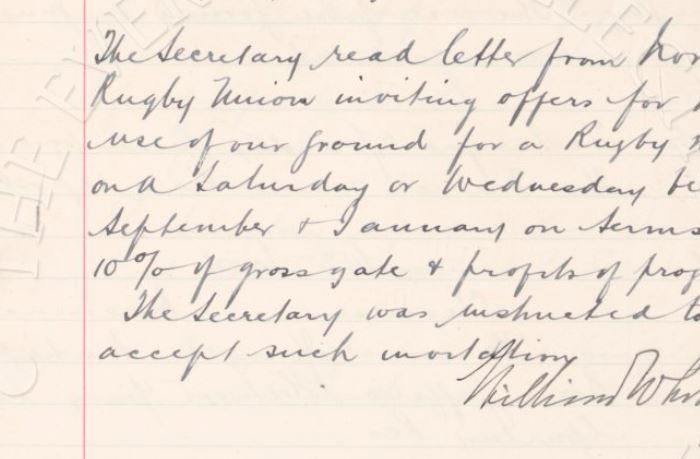 The Secretary read letter from Nor
Rugby Union inviting offers for
use of our ground for a Rugby
on a Saturday or Wednesday be
September & January on terms
10% of gross gate & profits of prog
The Secretary was instructed to
accept such invitation
William Wh